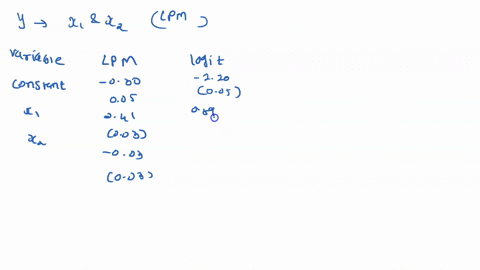 y → x₁ & x₂ (LPM)
variable LPM logit
constant -0.30 -2.20
0.05 (0.05)
x₁ 2.41 0.89
x₂ (0.03)
-0.03
(0.03)